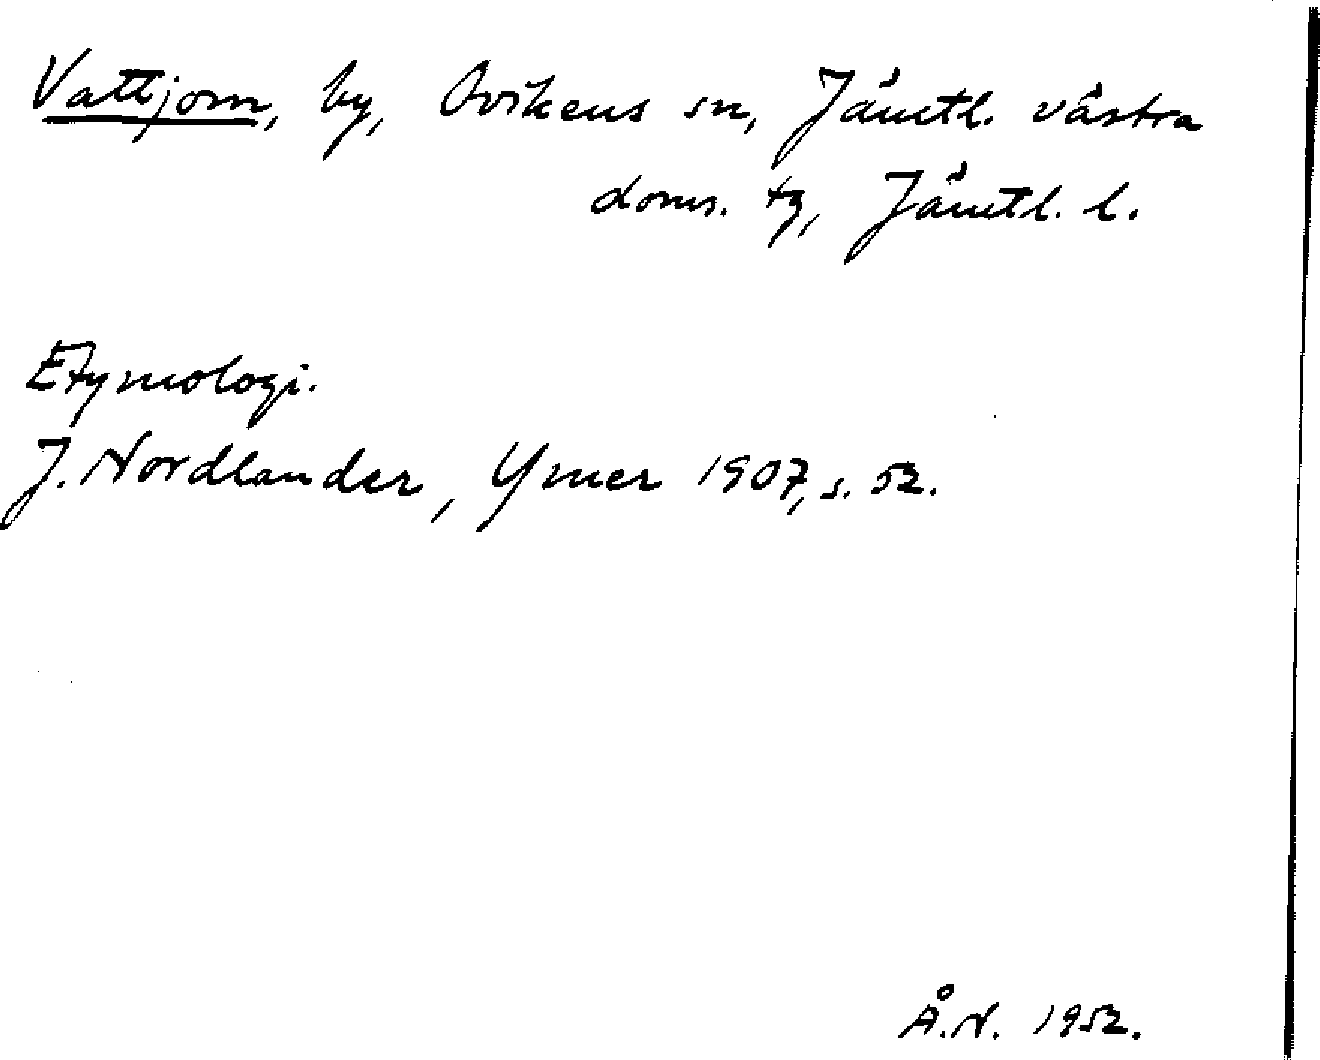 Vattjom, by, Ovikens sn, Jämtl. västra
doms. tg, Jämtl. l.
Etymologi.
J. Nordlander, Ymer 1907, s. 52.
Å.N. 1952.